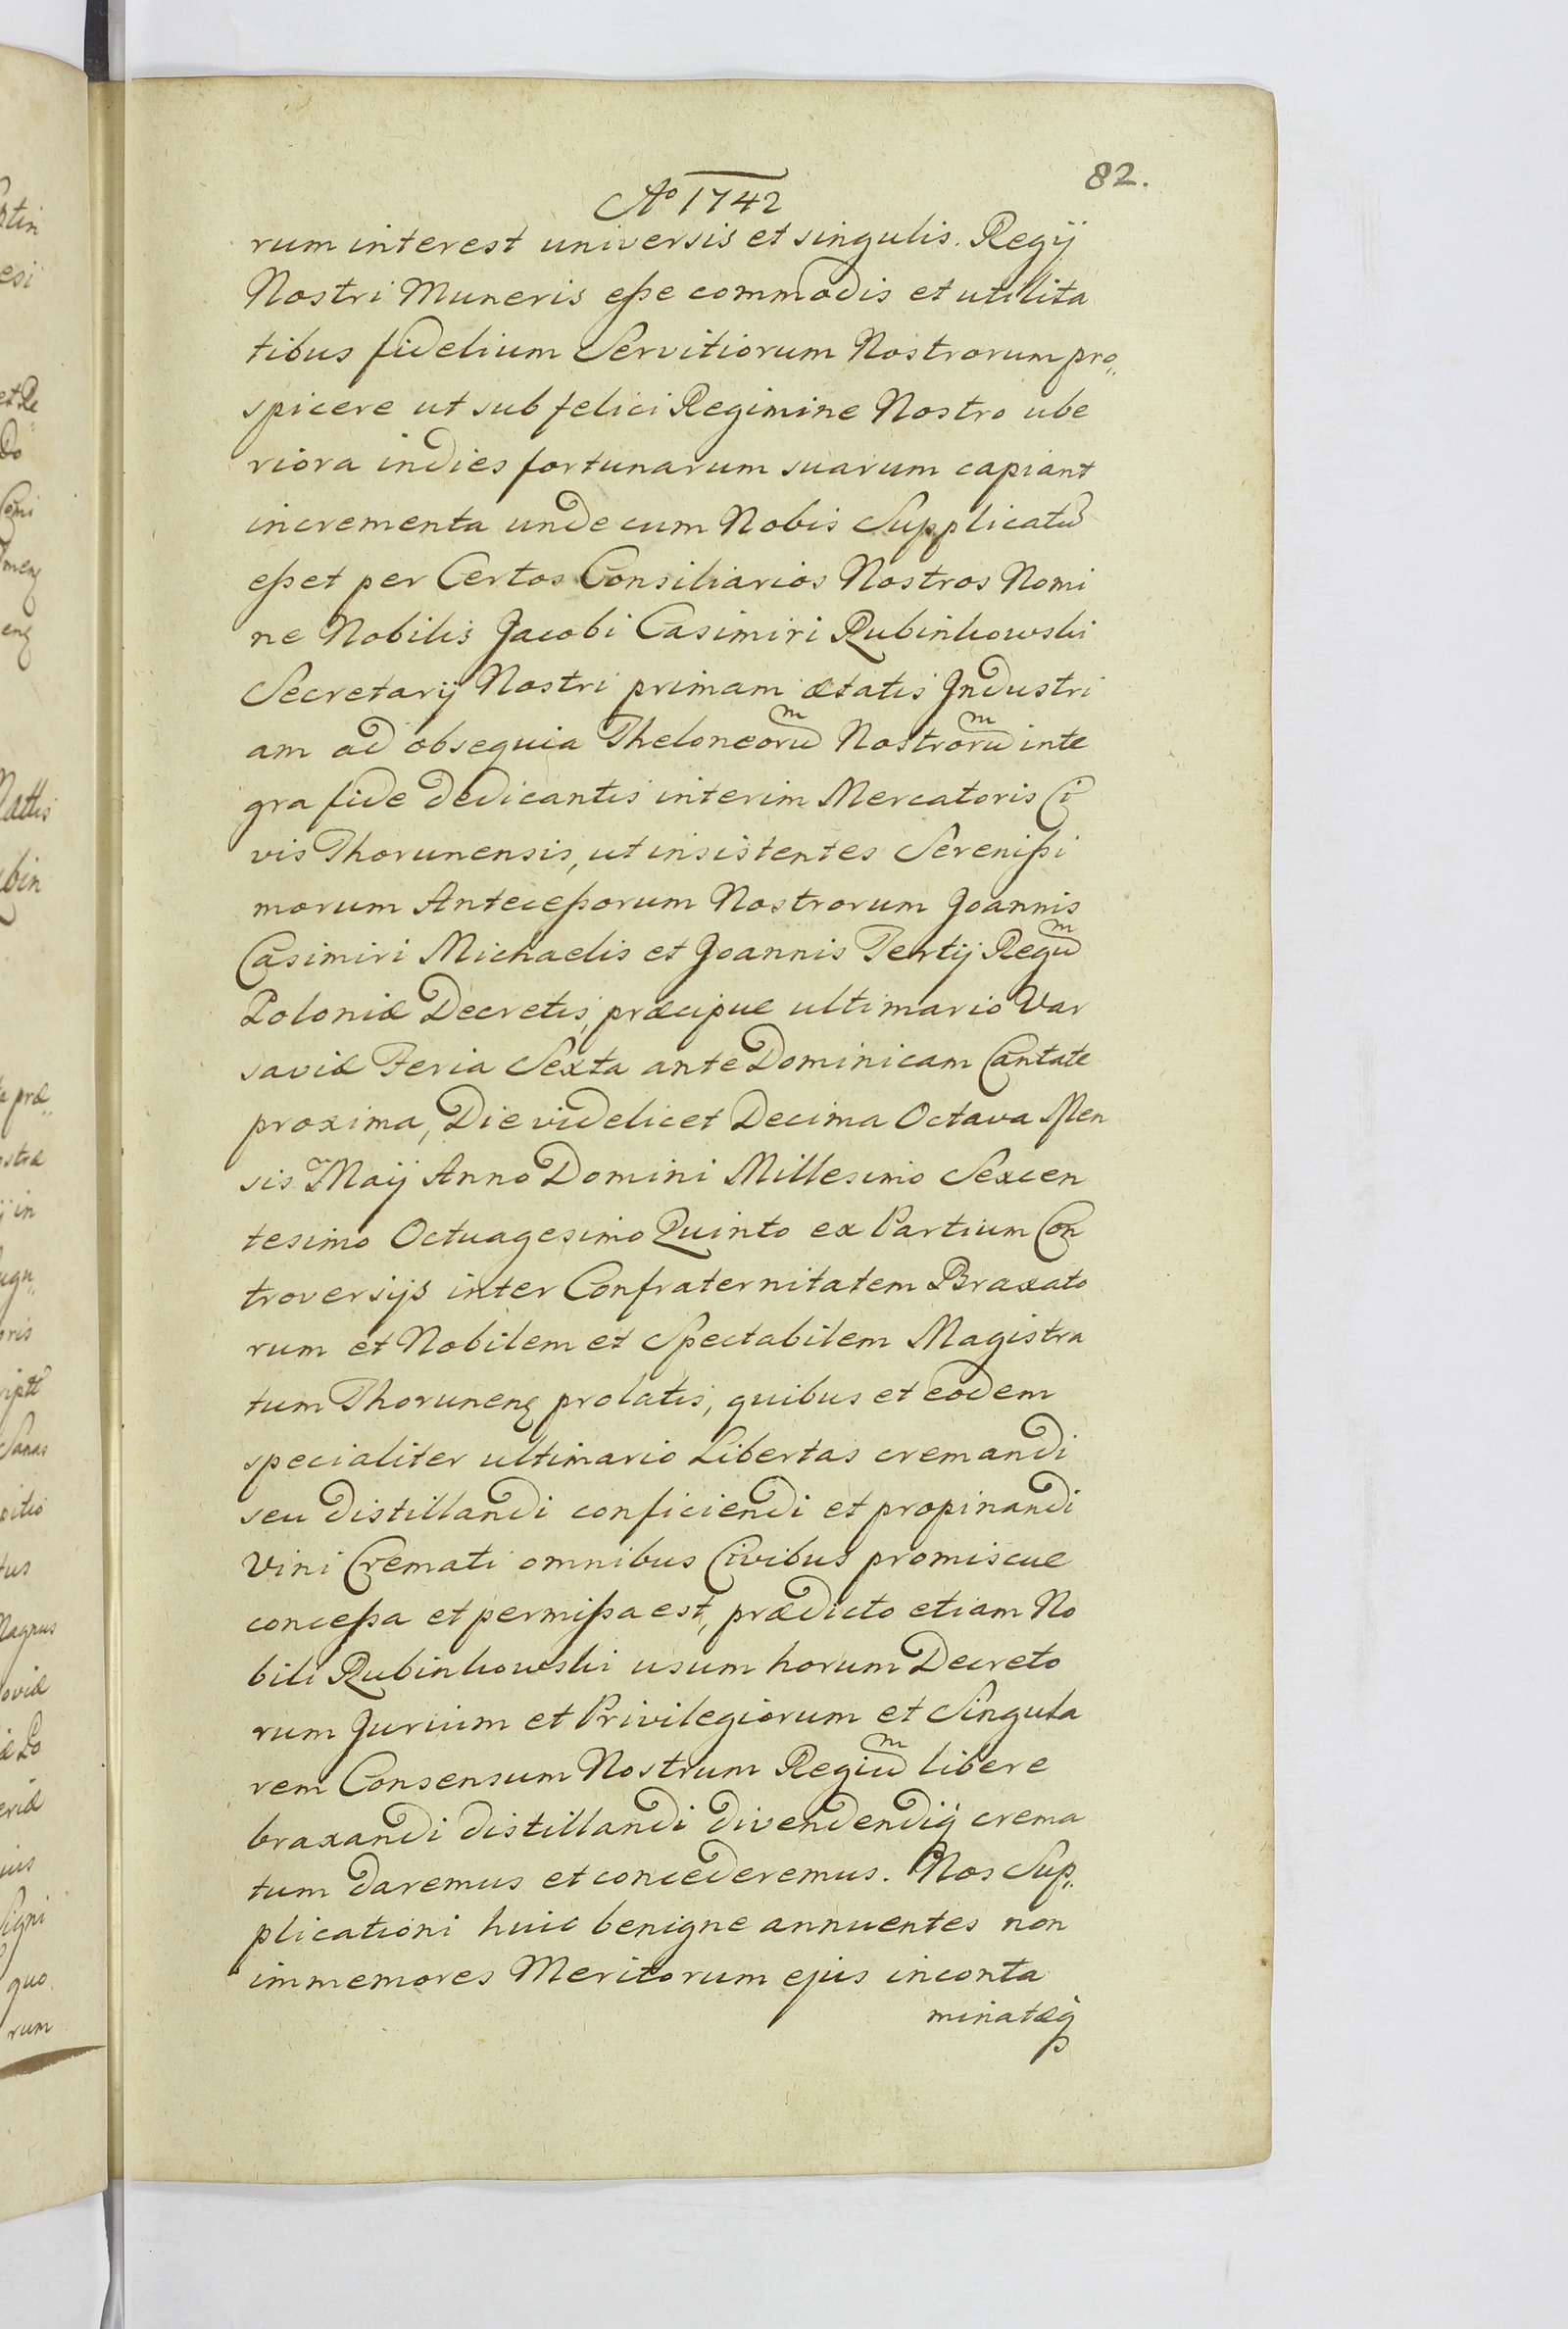 82.
Aо 1742
rum interest universis et singulis. Regij
Nostri Muneris eße commodis et utilita
tibus fidelium Servitiorum Nostrorum pro„
spicere ut sub felici Regimine Nostro ube
riora indies fortunarum suarum capiant
incrementa unde cum Nobis Supplicatũ
eßet per Certos Consiliarios Nostros Nomi
ne Nobilis Jacobi Casimiri Rubinkowski
Secretarij Nostri primam ætatis Industri
am ad obsequia Theloneorum Nostrorum inte
gra fide dedicantis interim Mercatoris Ci
vis Thorunensis, ut insistentes Serenißi
morum Anteceßorum Nostrorum Joannis
Casimiri Michaelis et Joannis Tertij Regum
Poloniæ Decretis, præcipue ultimario Var
saviæ Feria Sexta ante Dominicam Cantate
proxima, Die videlicet Decima Octava Men
sis Maij Anno Domini Millesimo Sexcen
tesimo Octuagesimo Quinto ex Partium Con
troversijs inter Confraternitatem Braxato
rum et Nobilem et Spectabilem Magistra
tum Thorunenꝫ prolatis, quibus et eodem
specialiter ultimario Libertas cremandi
seu distillandi conficiendi et propinandi
Vini Cremati omnibus Civibus promiscue
conceßa et permißa est, prædicto etiam No
bili Rubinkowski usum horum Decreto
rum Jurium et Privilegiorum et Singula
rem Consensum Nostrum Regium libere
braxandi distillandi divendendiq́ crema
tum daremus et concederemus. Nos Sup„
plicationi huic benigne annuentes non
immemores Meritorum ejus inconta
minatæq́